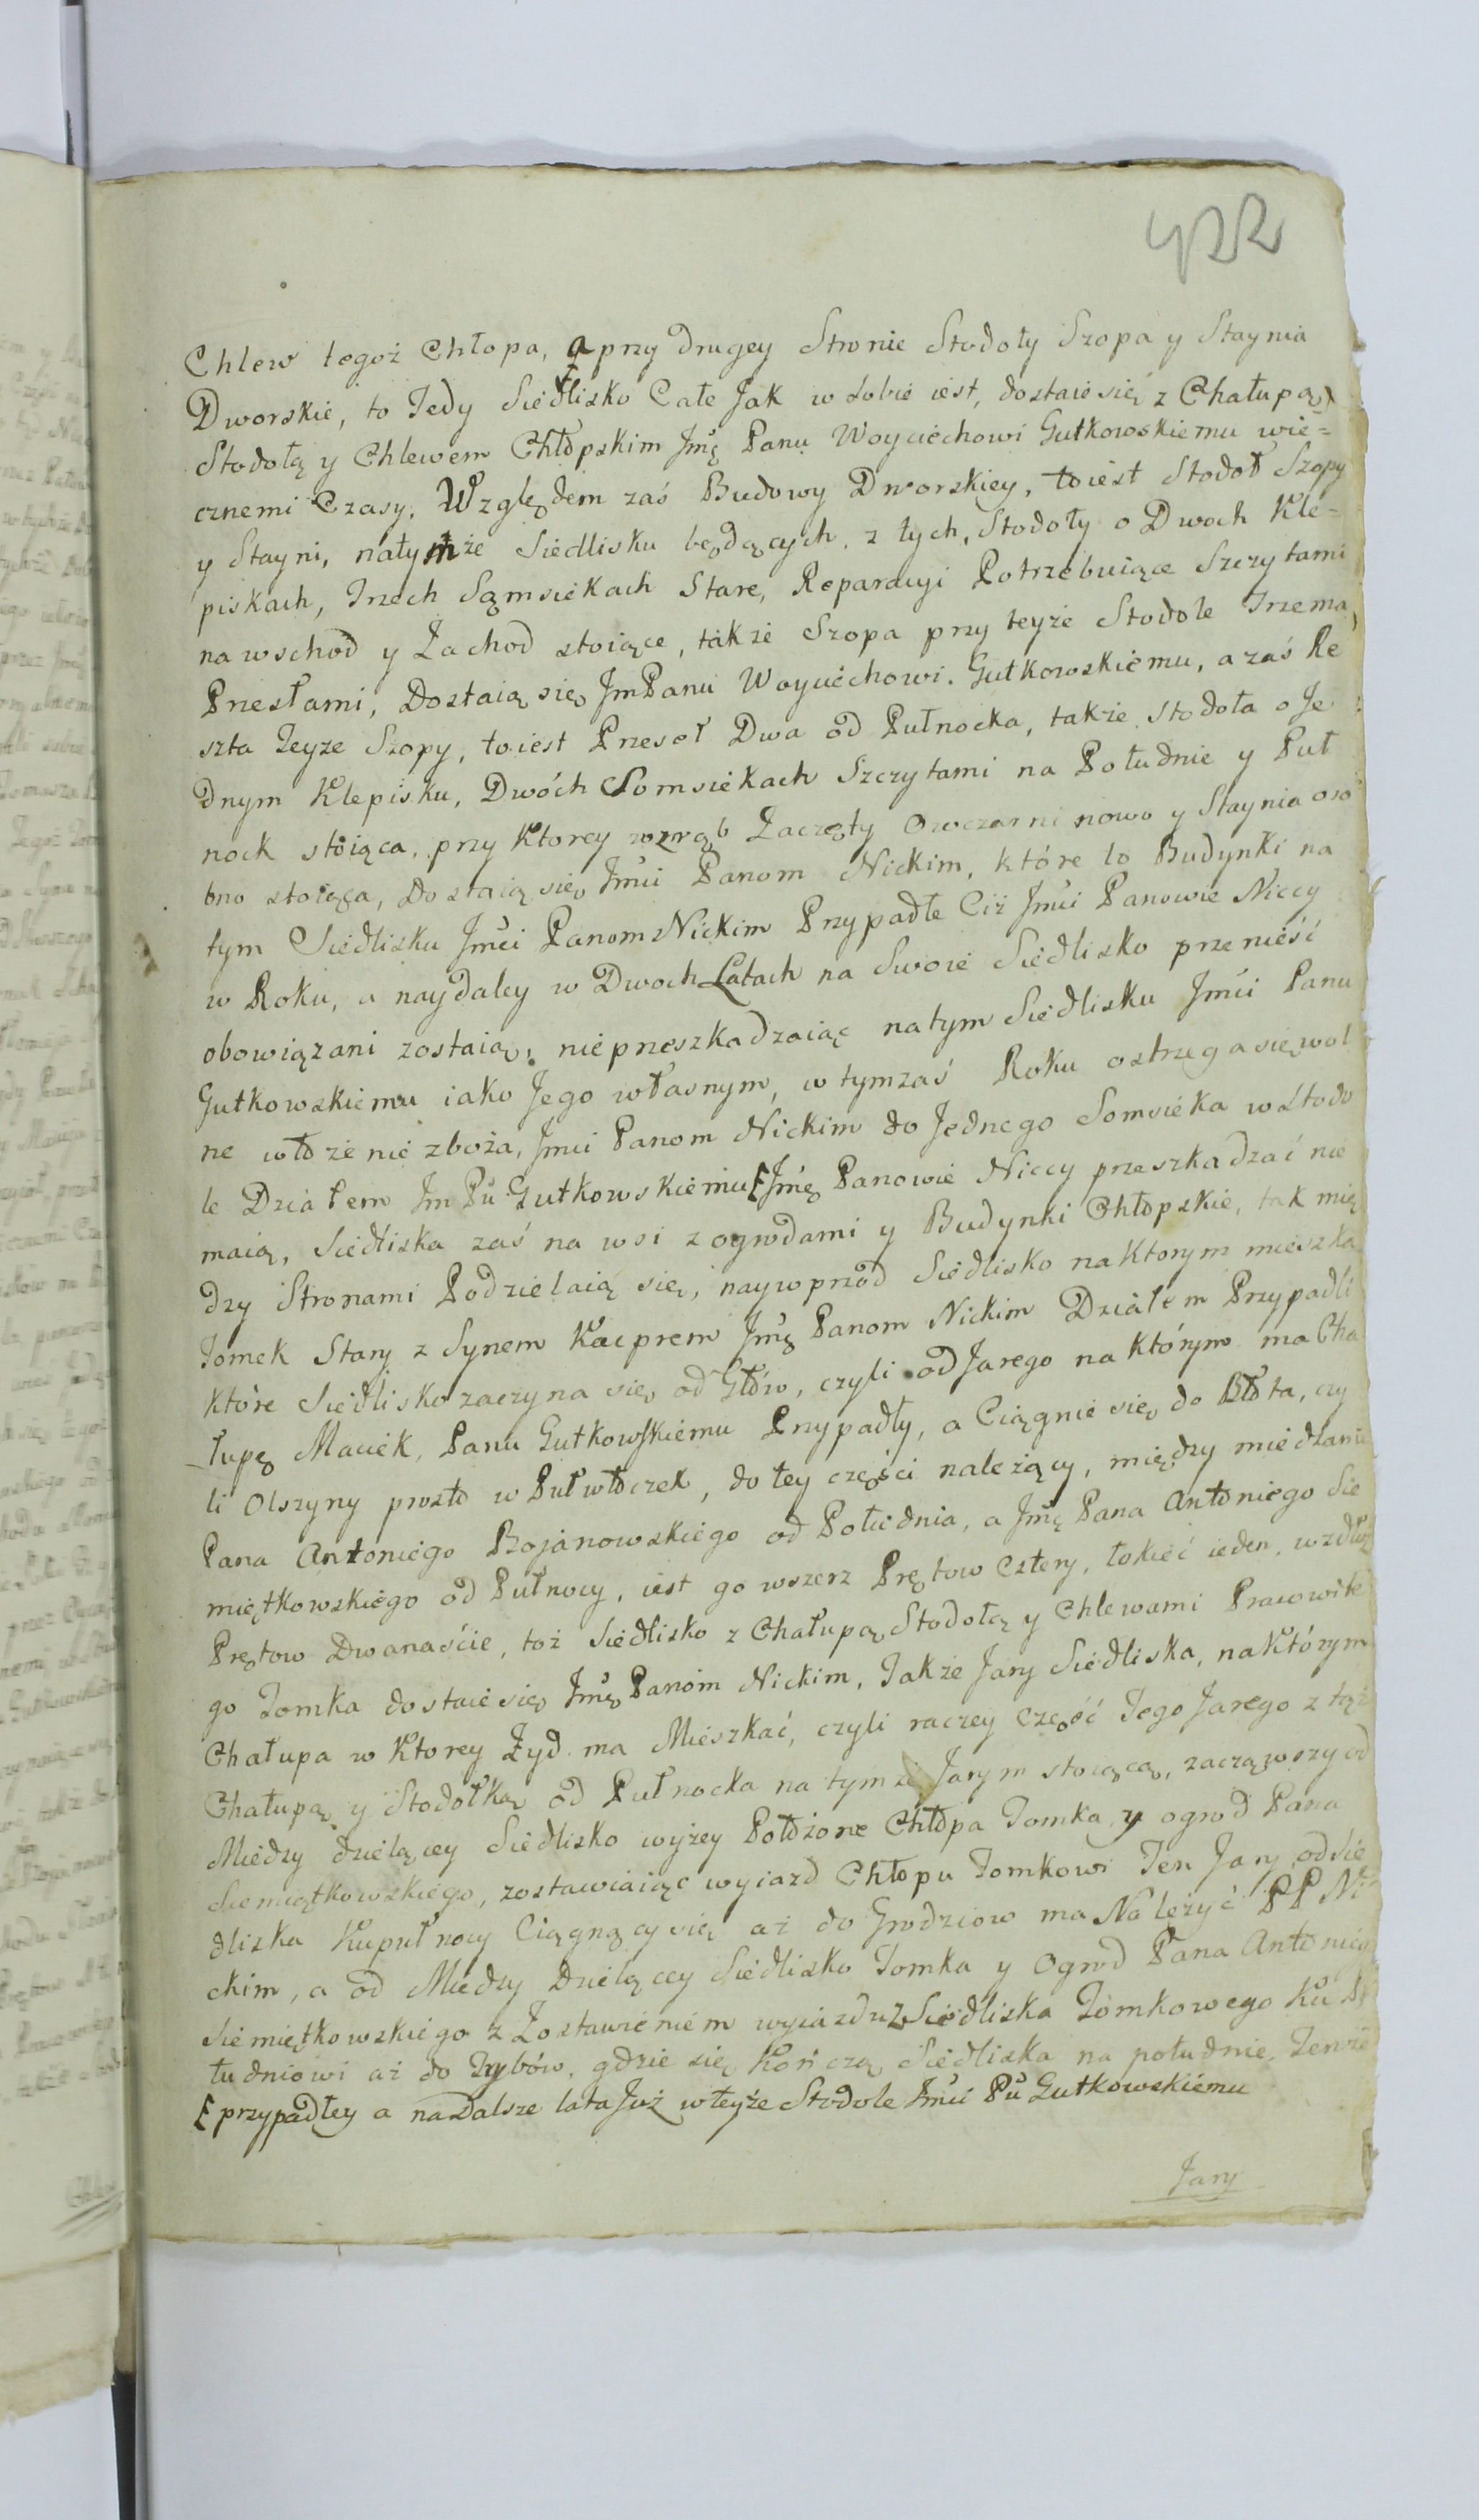 422
Chlew tegoż Chłopa, a przy drugey Stronie Stodoły Szopa y Staynia
Dworskie, to Tedy Siedlisko Całe Jak w sobie iest, dostaie się z Chałupą,
Stodołą y Chlewem Chłopskim Jmę Panu Woyciechowi Gutkowskiemu wie=
cznemi Czasy. Względem zaś Budowy Dworskiey, to iest Stodoł Szopy
y Stayni, na tymże Siedlisku będących, z tych, Stodoły o Dwoch Kle=
piskach, Trzech Sąmsiekach Stare, Reparacyi Potrzebuiące Szczytami
na wschod y Zachod stoiące, także Szopa przy teyże Stodole Trzema,
Przesłami, Dostaią się JmPanu Woyciechowi Gutkowskiemu, a zaś Re
szta Teyże Szopy, to iest Przesoł Dwa od Pułnocka, także Stodoła o Je
dnym Klepisku, Dwóch Somsiekach Szczytami na Południe y Puł
nock stoiąca, przy Ktorey wzrąb Zaczęty Owczarni nowo y Staynia oso
bno stoiąca, Dostaią się Jmći Panom Nickim, które to Budynki na
tym Siedlisku Jmći Panom Nickim Przypadłe Ciż Jmći Panowie Niccy
w Roku, a naydaley w Dwoch Latach na Swoie Siedlisko przenieść
obowiązani zostaią, nieprzeszkadzaiąc na tym Siedlisku Jmći Panu
Gutkowskiemu iako Jego własnym, w tym zaś Roku ostrzega się wol
ne włożenie zboża, Jmći Panom Nickim do Jednego Somsieka w Stodo
le Działem Jm Pu Gutkowskiemu [ Jmę Panowie Niccy przeszkadzać nie
maią, Siedliska zaś na wsi z ogrodami y Budynki Chłopskie, tak mię
dzy Stronami Podzielaią się, naywprzod Siedlisko na Ktorym mieszka
Tomek Stary z Synem Kacprem Jmę Panom Nickim Działem Przypadłi
które Siedlisko zaczyna się od Głów, czyli od Jarego na którym ma Cha
łupę Maciek, Panu Gutkowskiemu Przypadły, a Ciągnie się do Błota, czy
li Olszyny prosto w Pułwłoczek, do tey części należący, między miedzami
Pana Antoniego Bojanowskiego od Południa, a Jmę Pana Antoniego Sie
miątkowskiego od Pułnocy, iest go wszerz Prętow Cztery, łokieć ieden, wzdłuż
Prętow Dwanaście, toż Siedlisko z Chałupą Stodołą y Chlewami Pracowite
go Tomka dostaie się Jmę Panom Nickim, Także Jary Siedliska, na Którym
Chałupa w Ktorey Żyd ma Mieszkać, czyli raczey Część Tego Jarego z tąż
Chałupą y Stodołką od Pułnocka na tymże Jarym stoiącą, zacząwszy od
Miedzy dzielącey Siedlisko wyżey Położone Chłopa Tomka y ogrod Pana
Siemiątkowskiego, zostawiaiąc wyiazd Chłopu Tomkowi Ten Jary od Sie
dliska Ku pułnocy Ciągnący się aż do Grodziow ma Należyć PP Ni
ckim, a od Miedzy Dzielącey Siedlisko Tomka y Ogrod Pana Antonieg
Siemiętkowskiego z Zostawieniem wyiazdu z Siedliska Tomkowego Ku Po
łudniowi aż do Trybów, gdzie się Kończą Siedliska na południe, Tenże
[ przypadłey a na dalsze lata Już w teyże Stodole Jmći Pu Gutkowskiemu
Jary